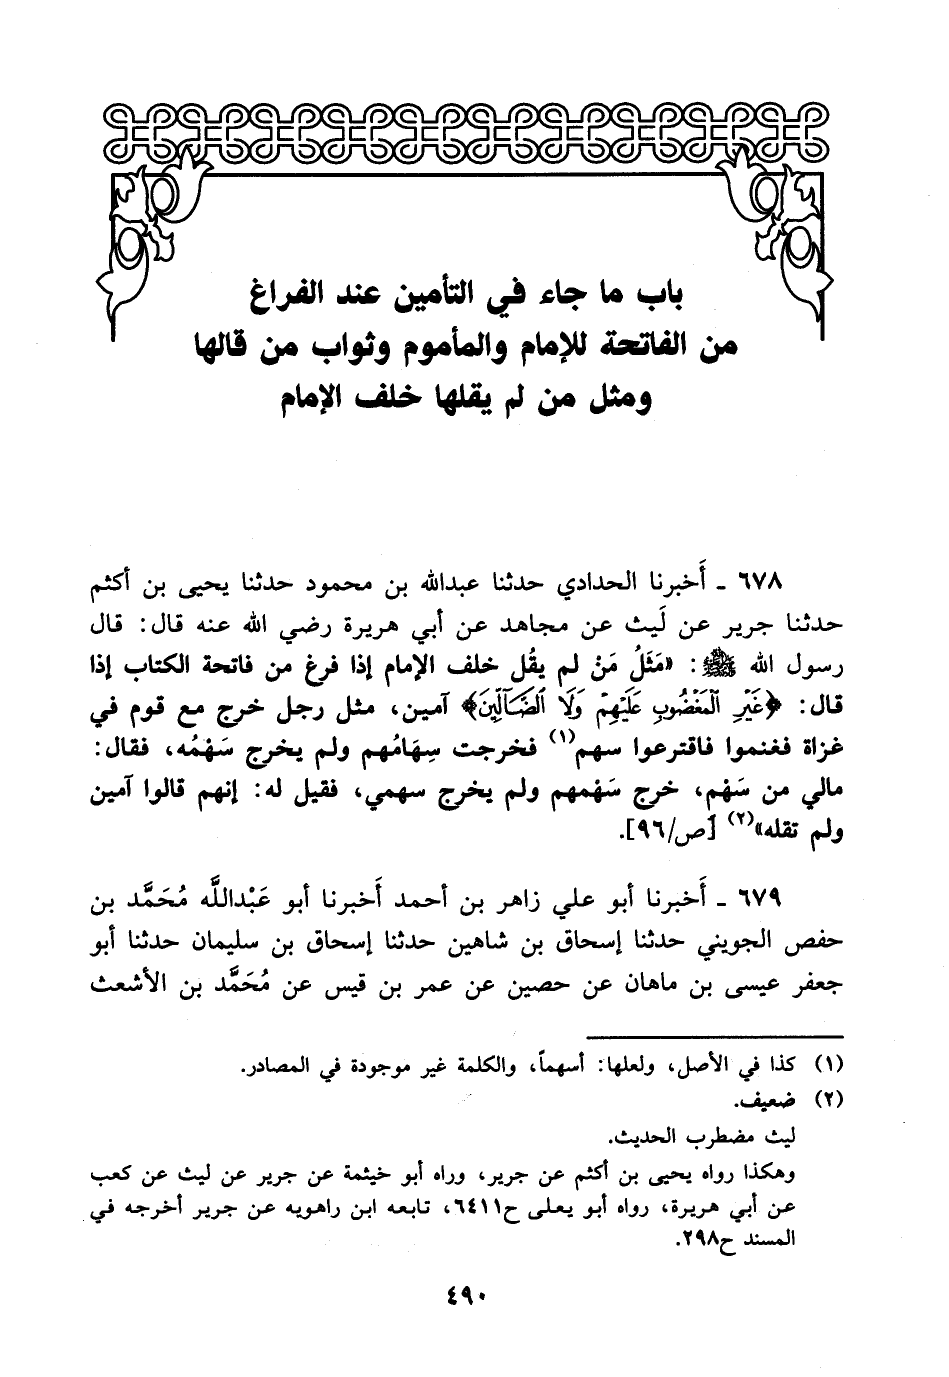 باب ما جاء في التأمين عند الفراغ
من الفاتحة للإمام والمأموم وثواب من قالها
ومثل من لم يقلها خلف الإمام
٦٧٨ ـ أَخبرنا الحدادي حدثنا عبدالله بن محمود حدثنا يحيى بن أكثم
حدثنا جرير عن لَيث عن مجاهد عن أبي هريرة رضي الله عنه قال: قال
رسول الله ﷺ: «مَثَلُ مَنْ لم يقُل خلف الإمام إذا فرغ من فاتحة الكتاب إذا
قال: ﴿غَيْرِ الْمَغْضُوبِ عَلَيْهِمْ وَلَا الضَّآلِّينَ﴾ آمين، مثل رجل خرج مع قوم في
غزاة فغنموا فاقترعوا سهم(١) فخرجت سِهَامُهم ولم يخرج سَهْمُه، فقال:
مالي من سَهْم، خرج سَهْمهم ولم يخرج سهمي، فقيل له: إنهم قالوا آمين
ولم تقله»(٢) [ص/٩٦].
٦٧٩ ـ أَخبرنا أبو علي زاهر بن أحمد أَخبرنا أبو عَبْداللَّه مُحَمَّد بن
حفص الجويني حدثنا إسحاق بن شاهين حدثنا إسحاق بن سليمان حدثنا أبو
جعفر عيسى بن ماهان عن حصين عن عمر بن قيس عن مُحَمَّد بن الأشعث
(١) كذا في الأصل، ولعلها: أسهماً، والكلمة غير موجودة في المصادر.
(٢) ضعيف.
ليث مضطرب الحديث.
وهكذا رواه يحيى بن أكثم عن جرير، وراه أبو خيثمة عن جرير عن ليث عن كعب
عن أبي هريرة، رواه أبو يعلى ح٦٤١١، تابعه ابن راهويه عن جرير أخرجه في
المسند ح٢٩٨.
٤٩٠